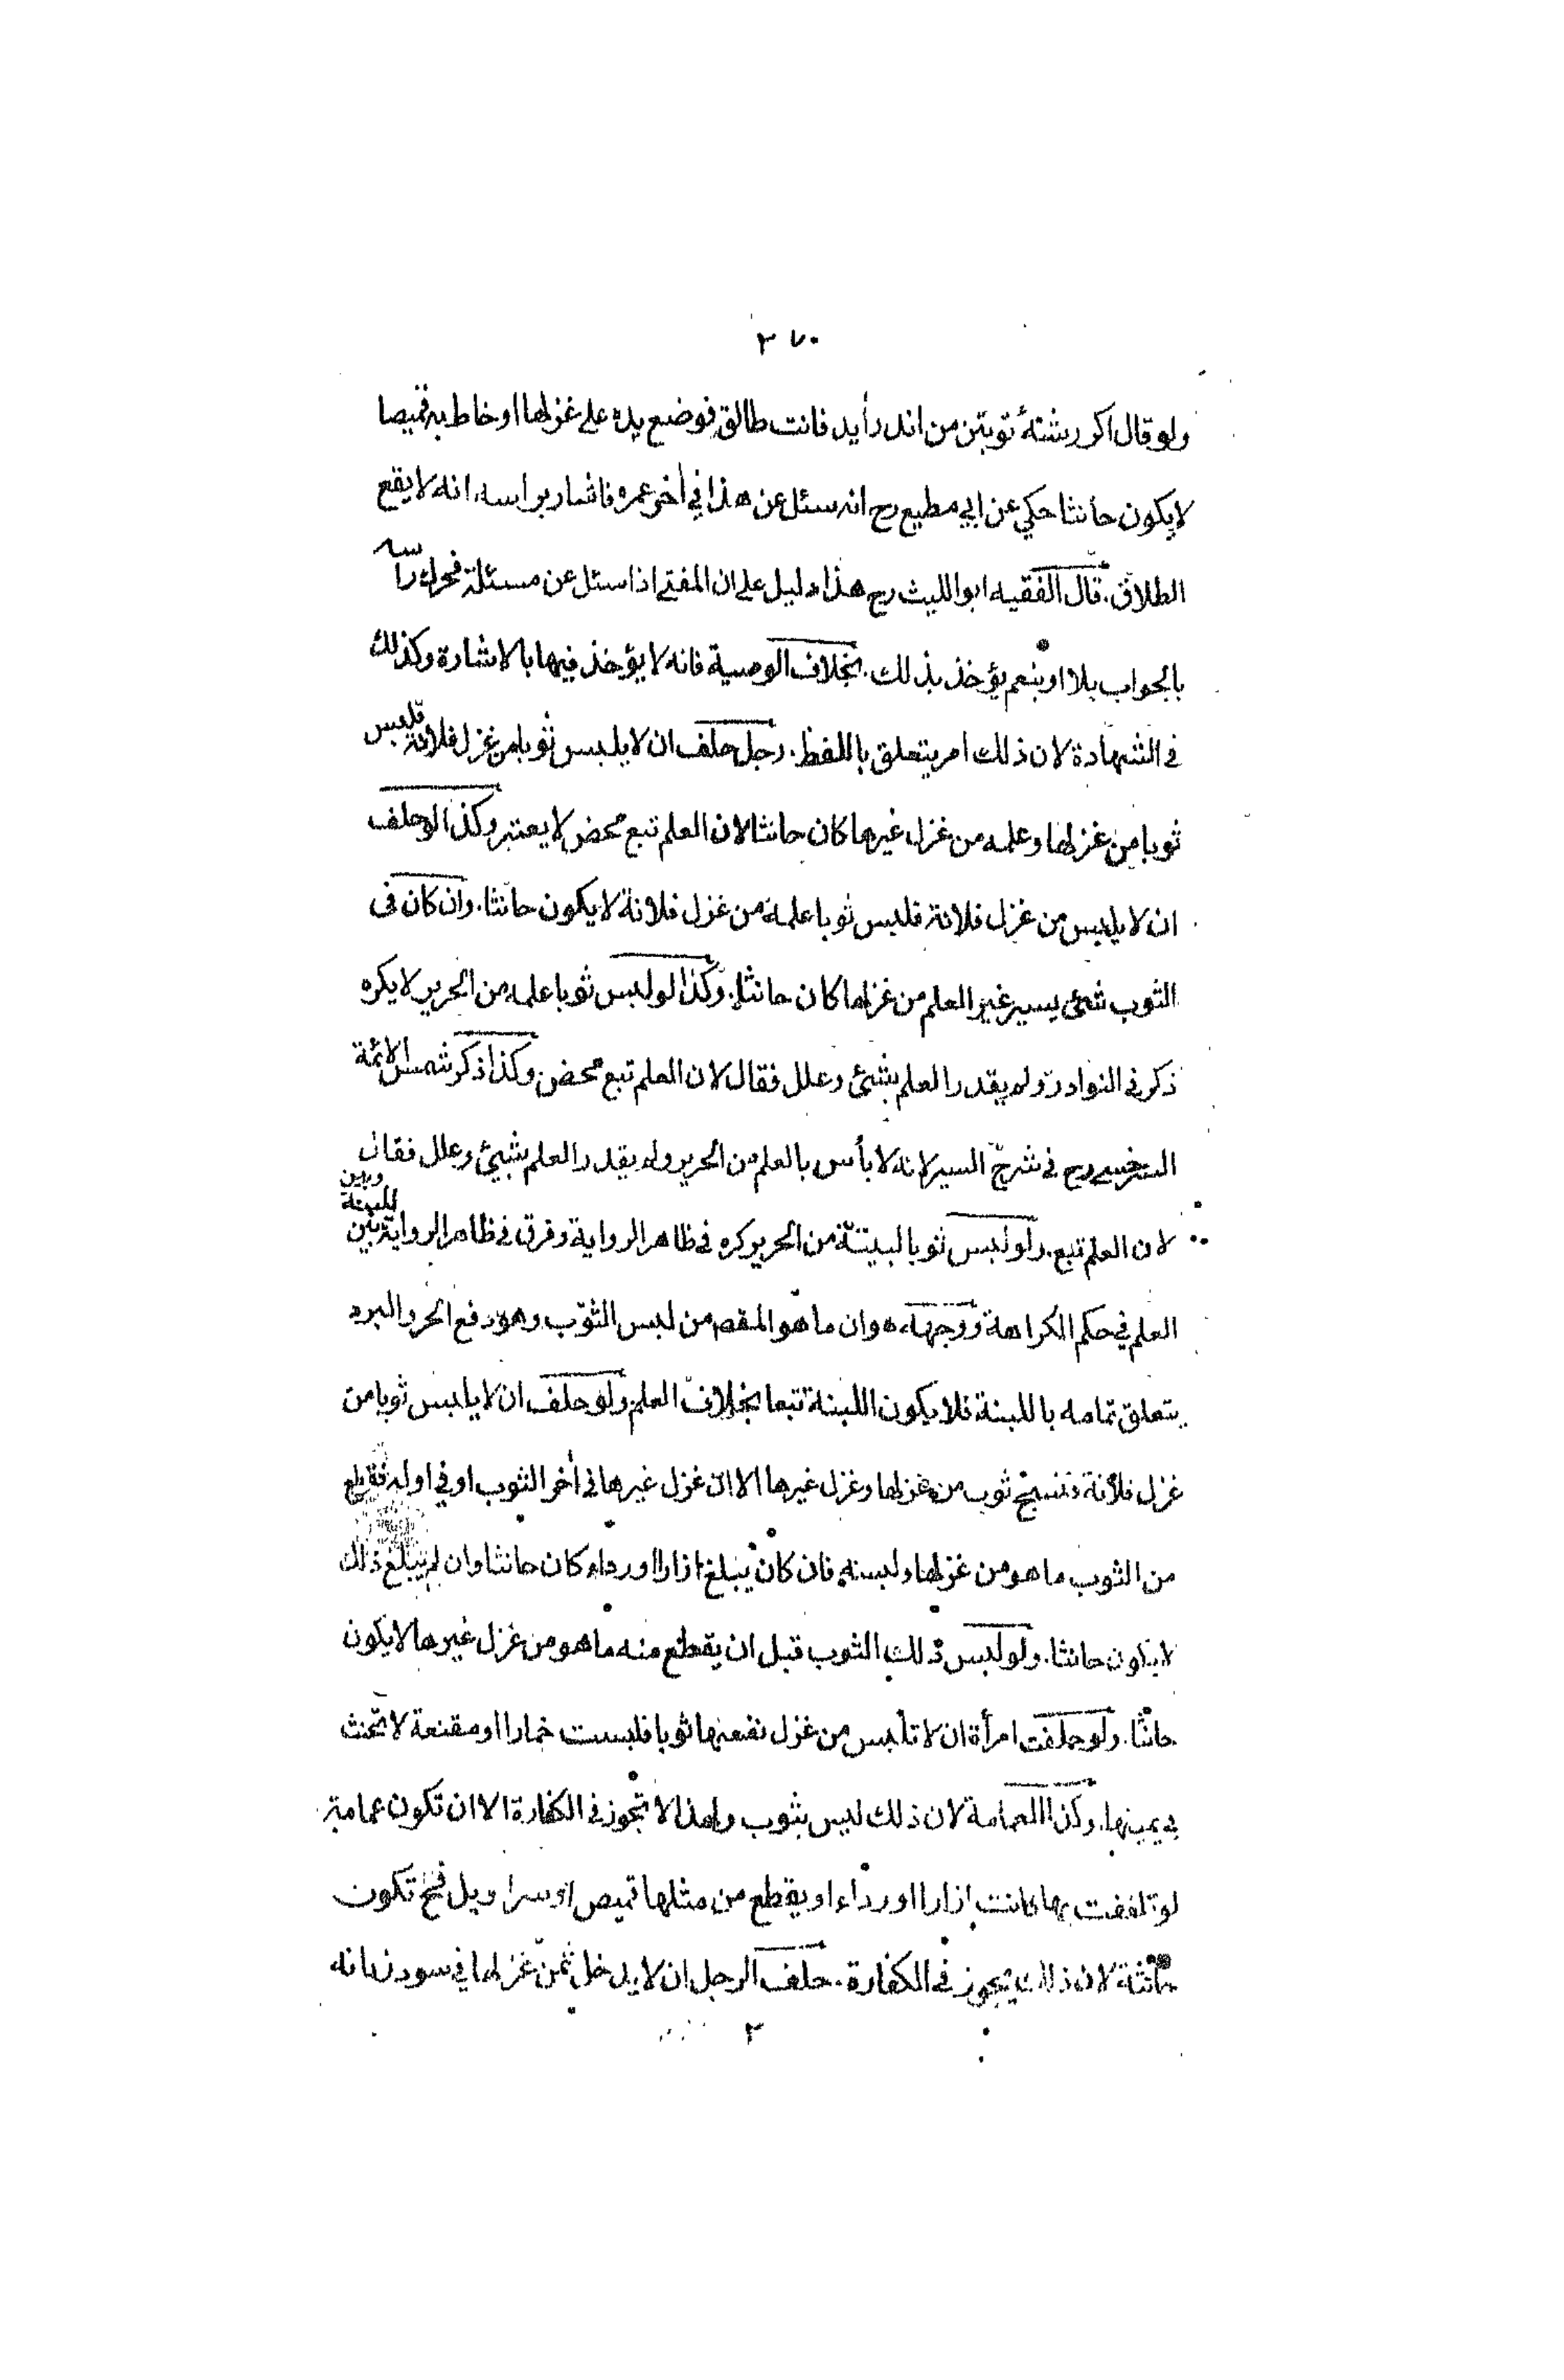 ٣٧٠
ولو قال اكر رشتهٔ تو بتن من اندر أيد فانت طالق فوضع يده على غزلها او خاط به قميصا
لا يكون حانثا حكي عن ابي مطيع رح انه سئل عن هذا في أخر عمره فاشار براسه انه لا يقع
الطلاق. قال الفقيه ابو الليث رح هذا دليل على ان المفتي اذا سئل عن مسئلة فحرك رأسه
بالجواب بلا او بنعم يؤخذ بذلك. بخلاف الوصية فانه لا يؤخذ فيها بالاشارة وكذلك
في الشهادة لان ذلك امر يتعلق باللفظ. رجل حلف ان لا يلبس ثوبا من غزل فلانة فلبس
ثوبا من غزلها وعلمه من غزل غيرها كان حانثا لان العلم تبع محض لا يعتبر وكذا لو حلف
ان لا يلبس من غزل فلانة فلبس ثوبا علمه من غزل فلانة لا يكون حانثا. وان كان في
الثوب شئ يسير غير العلم من غزلها كان حانثا. وكذا لو لبس ثوبا علمه من الحرير لا يكره
ذكر في النوادر ولم يقدر العلم بشئ وعلل فقال لان العلم تبع محض وكذا ذكر شمس الائمة
السرخسي رح في شرح السير لانه لا بأس بالعلم من الحرير ولم يقدر العلم بشيئ وعلل فقال
لان العلم تبع. ولو لبس ثوبا لبيتنة من الحرير كره في ظاهر الرواية وفرق في ظاهر الرواية بين اللبنة وبين
العلم في حكم الكراهة ووجهه هو ان ما هو المقصم من لبس الثوب وهو دفع الحر والبرد
يتعلق تمامه باللبنة فلا يكون اللبنة تبعا بخلاف العلم ولو حلف ان لا يلبس ثوبا من
غزل فلانة فنسج ثوب من غزلها وغزل غيرها الا ان غزل غيرها في أخر الثوب او في اوله فقطع
من الثوب ما هو من غزلها ولبسه فان كان يبلغ ازارا او رداء كان حانثا وان لم يبلغ ذلك
لا يكون حانثا. ولو لبس ذلك الثوب قبل ان يقطع منه ما هو من غزل غيرها لا يكون
حانثا. ولو حلفت امرأة ان لا تلبس من غزل نفسها ثوبا فلبست خمارا او مقنعة لا تحنث
في يمينها. وكذا العمامة لان ذلك ليس بثوب ولهذا لا تجوز في الكفارة الا ان تكون عمامة
لو تلففت بها كانت ازارا او رداء او يقطع من مثلها قميص او سراويل فح تكون
حانثة لان ذلك يجوز في الكفارة. حلف الرجل ان لا يدخل ثمن غزلها في سود زيانه
٢